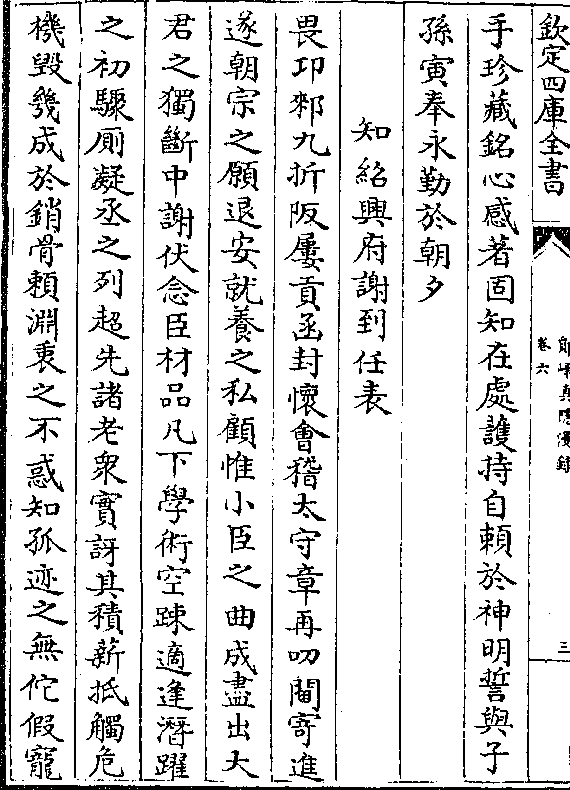 欽定四庫全書
鄮峰真隠漫録
卷六
三
手珍藏銘心感著固知在處護持自頼於神明誓與子
孫寅奉永勤於朝夕
知紹興府謝到任表
畏卭郲九折阪屢貢函封懷會稽太守章再叨閫寄進
遂朝宗之願退安就養之私顧惟小臣之曲成盡出大
君之獨斷中謝伏念臣材品凡下學術空踈適逢潛躍
之初驟厠凝丞之列超先諸老衆實訝其積薪抵觸危
機毀幾成於銷骨頼淵衷之不惑知孤迹之無佗假寵